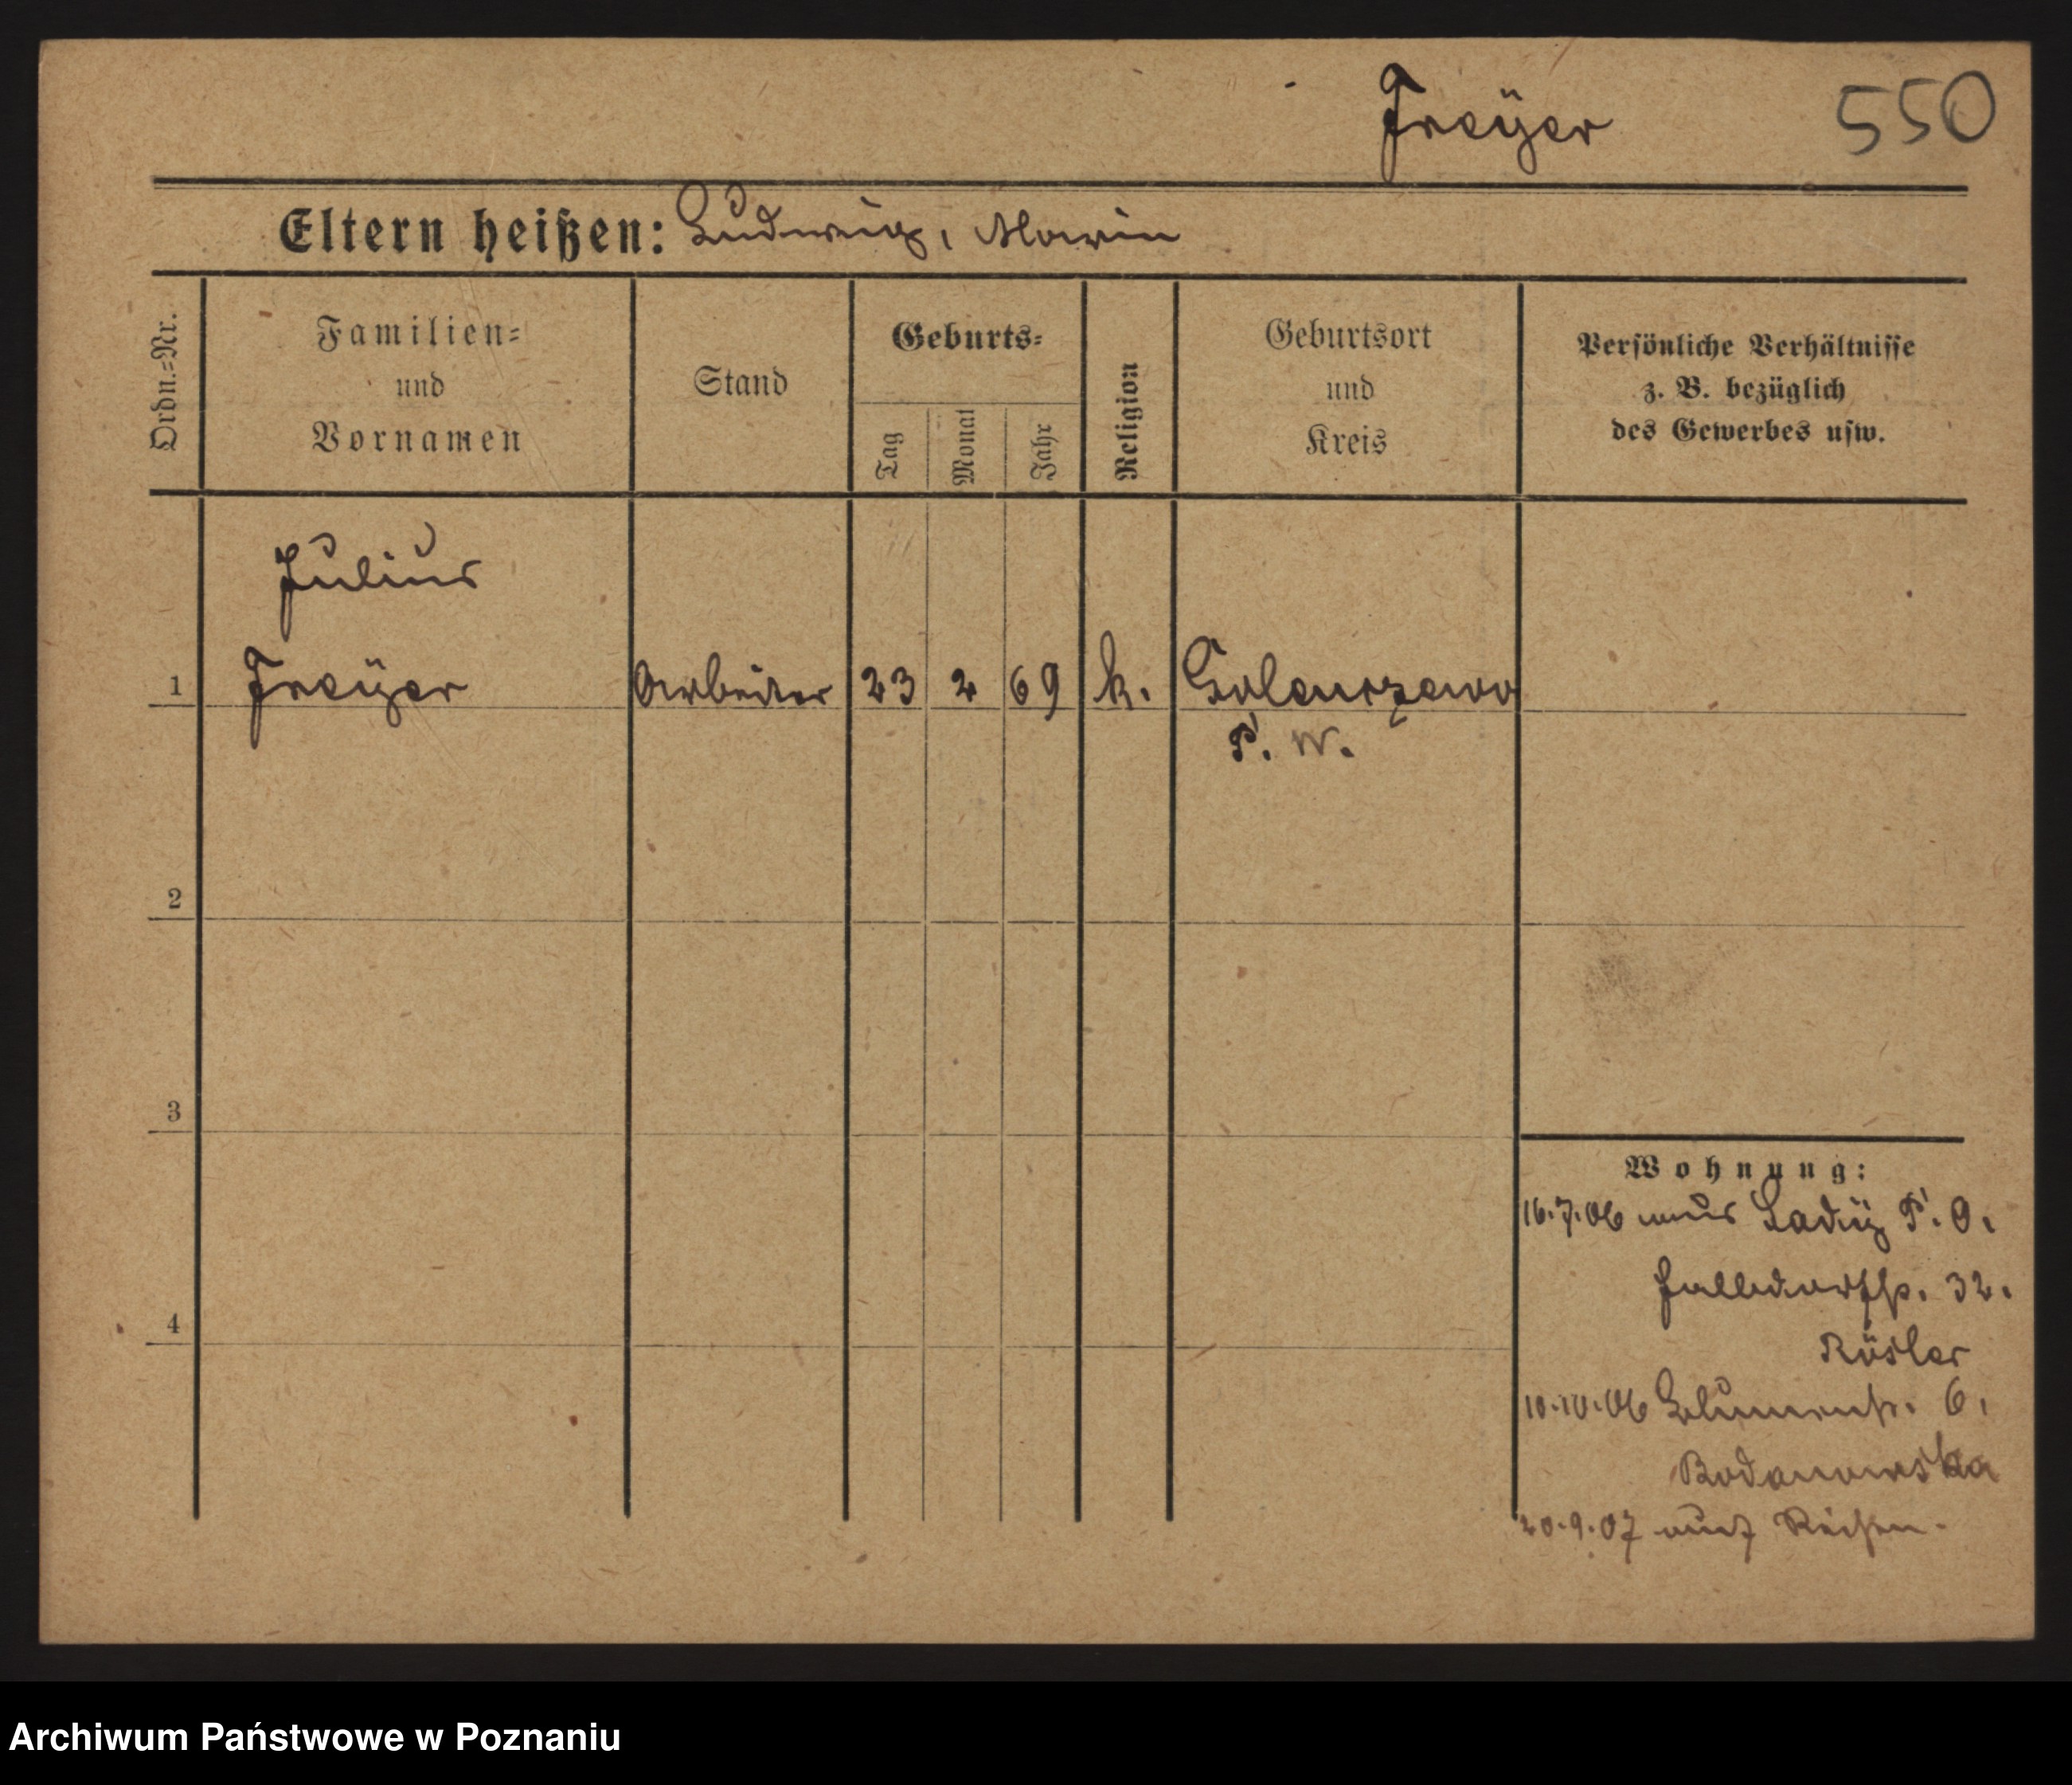 Freÿer 550
Eltern heißen: Ludwig, Marie
Ordn.=Nr.
Familien=
und
Vornamen
Stand
Geburts=
Tag
Monat
Jahr
Religion
Geburtsort
und
Kreis
Persönliche Verhältnisse
z. B. bezüglich
des Gewerbes usw.
Julius
1 Freÿer Arbeiter 23 2 69 k. Golenczewo
P. W.
2
3
4
Wohnung:
16.7.06 aus P. O.
Halbdorfstr. 32.
Rösler
10.10.06 Blumenstr. 6.
Bodanowska
20.9.07 auf Reisen.
Archiwum Państwowe w Poznaniu